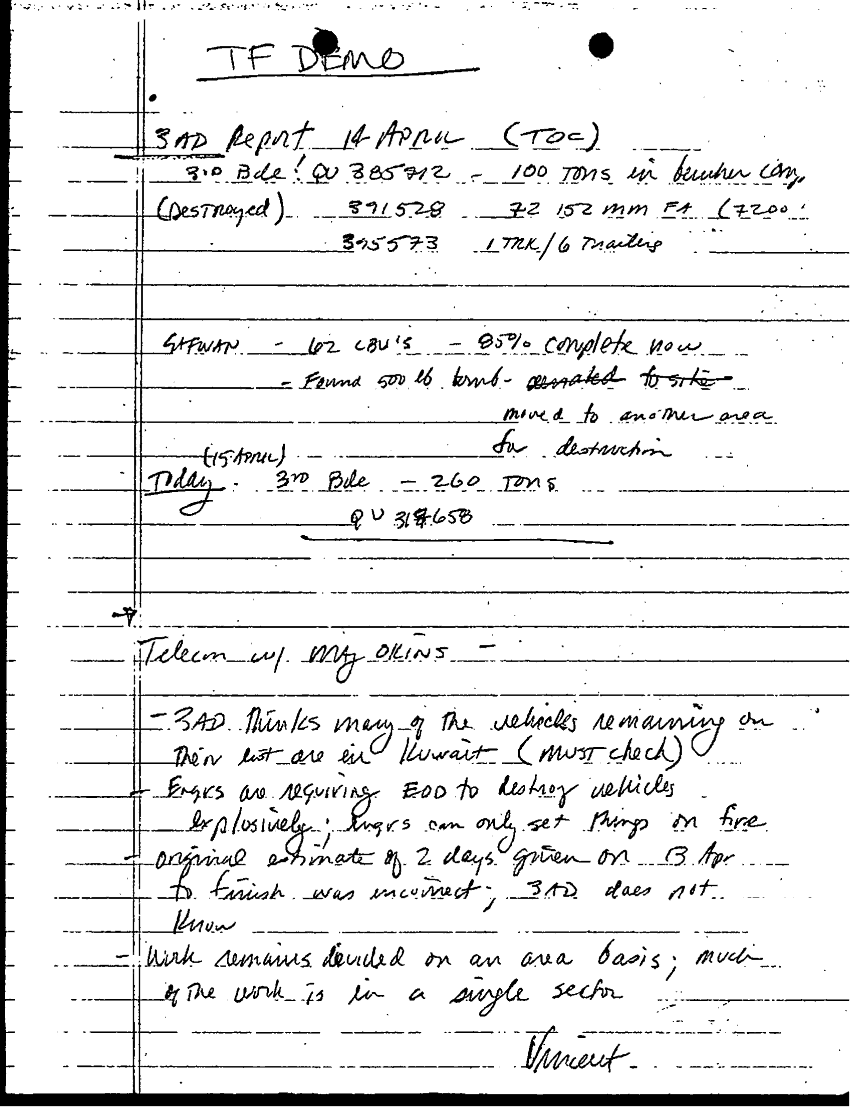 TF DEMO
3AD Report 14 APRIL (TOC)
3rd Bde! QU 385712 - 100 Tons in bunker
(Destroyed) 391528 72 152 mm FA (7200
395573 1 TRK/6 Trailers
SAFWAN - 62 CBU's - 85% complete now
- Found 500 lb bomb - to site
moved to another area
for destruction
(15 APRIL)
Today. 3rd Bde - 260 Tons
QU 658
Telecon w/ MAJ OKINS -
- 3AD Thinks many of the vehicles remaining on
their list are in Kuwait (must check)
- Engrs are requiring EOD to destroy vehicles
explosively; Engrs can only set things on fire
- original estimate of 2 days given on 13 Apr
to finish was incorrect; 3AD does not
know
- Work remains divided on an area basis; much
of the work is in a single sector
Vincent